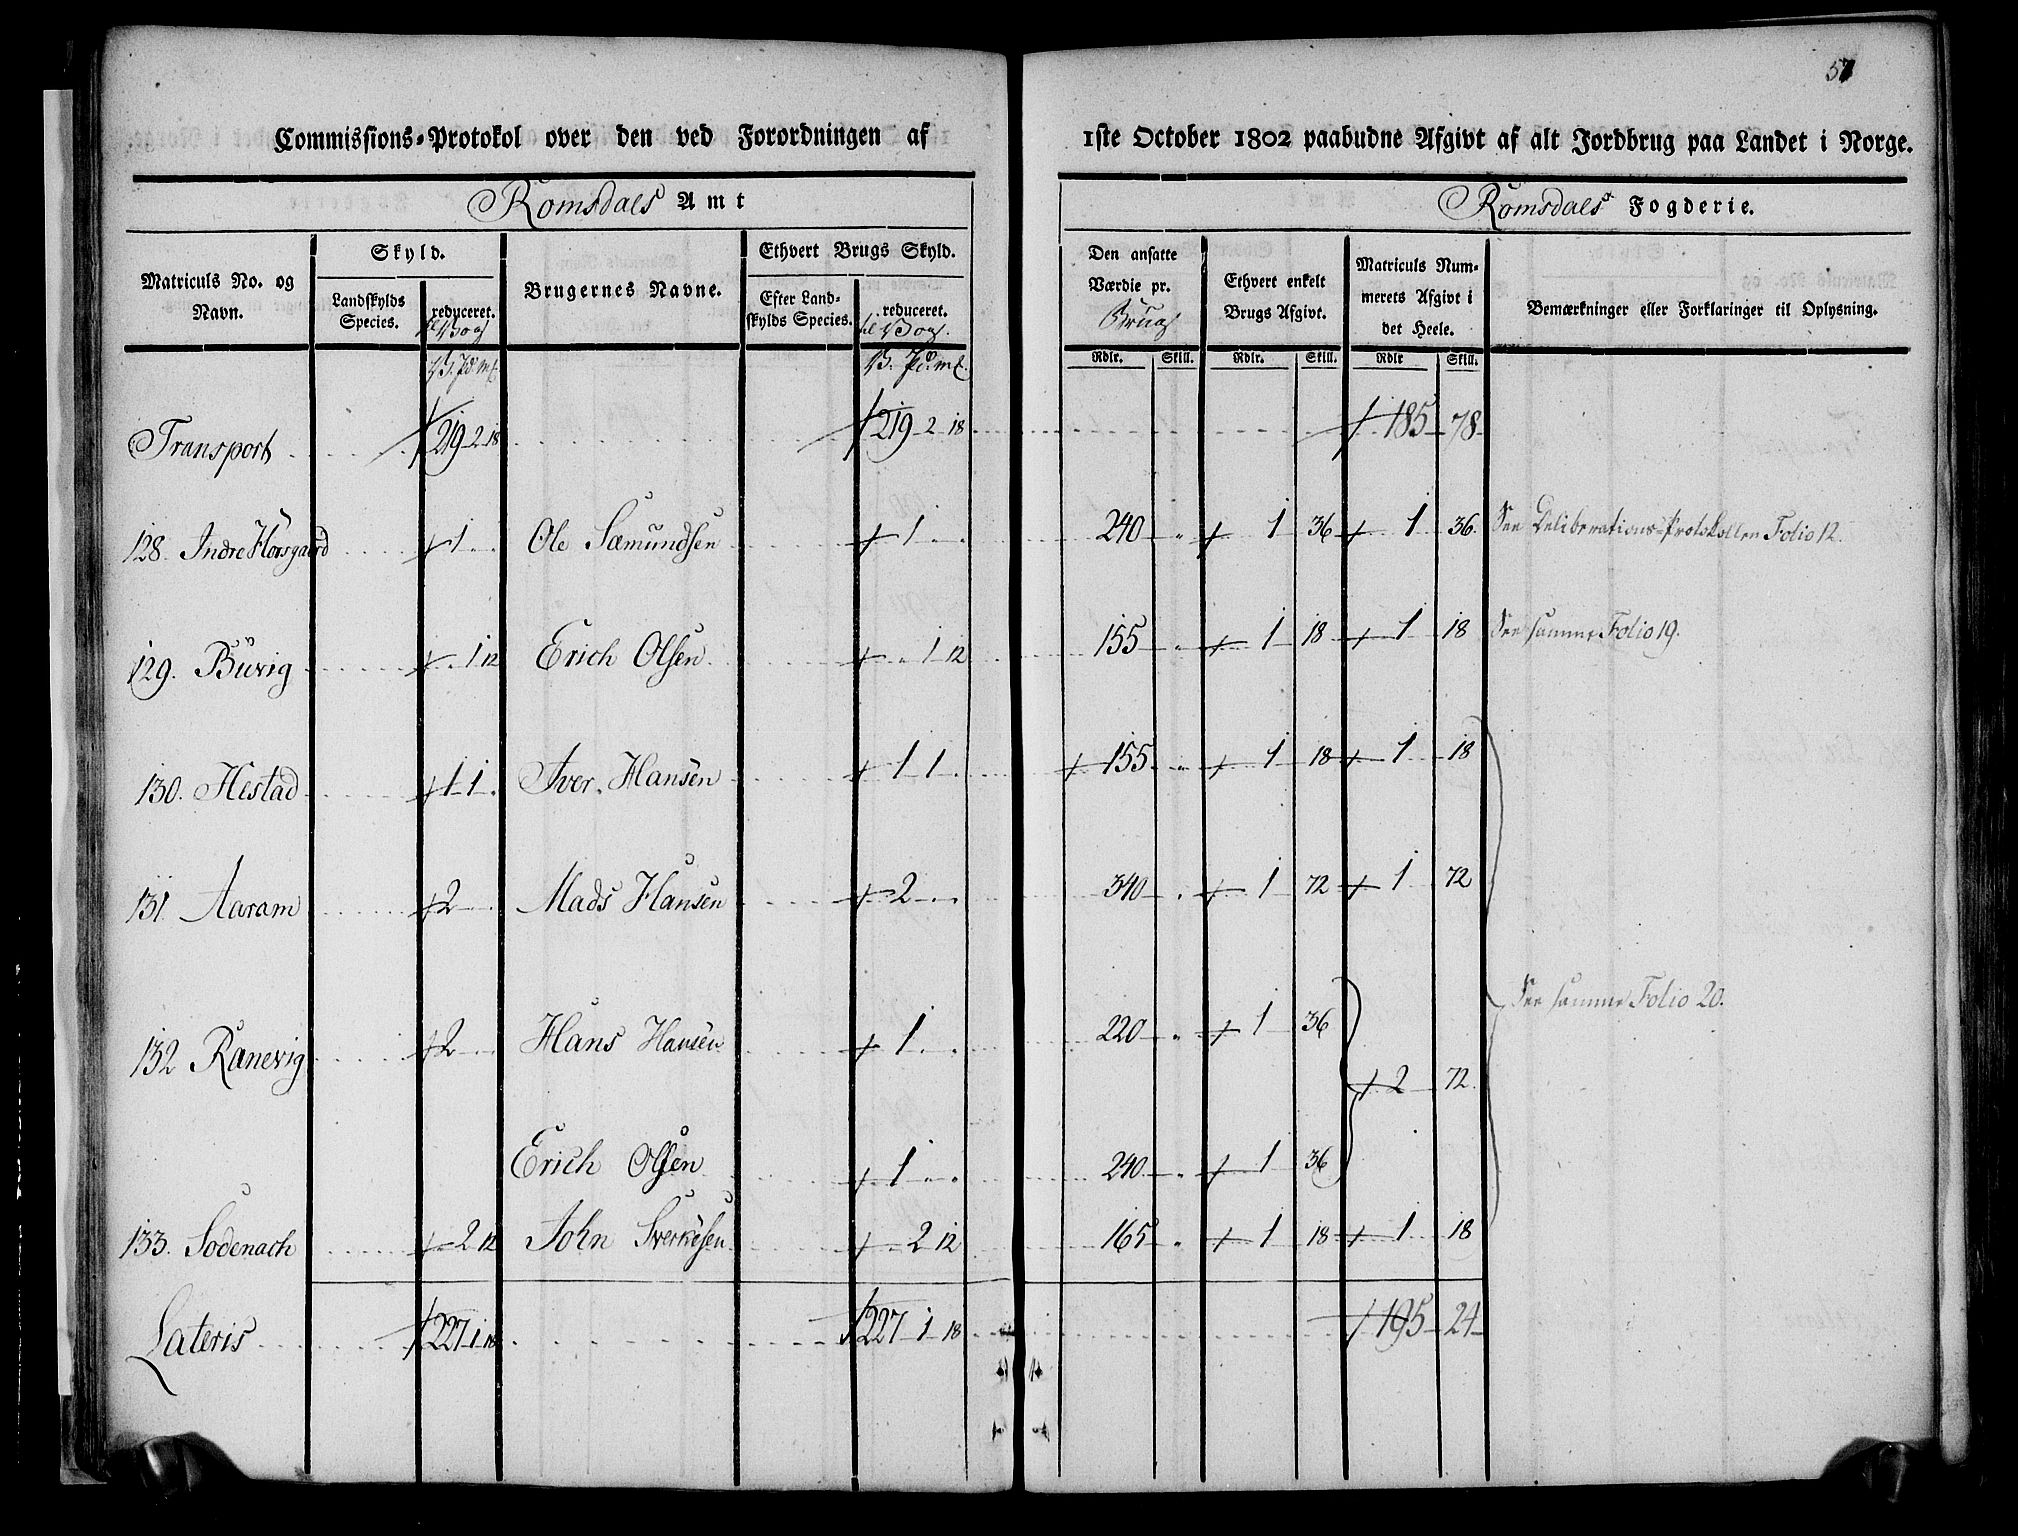 57
Commissions-Protokol over den ved Forordningen af 1ste October 1802 paabudne Afgivt af alt Jordbrug paa Landet i Norge.
Romsdals Amt
Romsdals Fogderie.
Matriculs No. og Navn.
Skyld.
Landskylds Species.
reduceret.
til Vog
Brugernes Navne.
Ethvert Brugs Skyld.
Efter Landskylds Species.
reduceret.
til Vog.
Den ansatte Værdie pr. Brug
Ethvert enkelt Brugs Afgivt.
Matriculs Nummerets Afgivt i det Heele.
Bemærkninger eller Forklaringer til Oplysning.
V. Pd. mk. V. Pd. mk. Rdlr. Skill. Rdlr. Skill. Rdlr Skill.
Transport 219 2 18 219 2 18 185 78
128. Indre Horsgaard 1 Ole Sæmundsen 1 240 1 36 1 36 See Deliberations-Protokollen Folio 12.
129. Buvig 1 12 Erich Olsen 1 12 155 1 18 1 18 See samme Folio 19.
130. Hestad 1 1 Iver Hansen 1 1 155 1 18 1 18
131 Aaram 2 Mads Hansen 2 340 1 72 1 72
See samme Folio 20.
132 Ranevig 2 Hans Hansen 1 220 1 36
2 72
Erich Olsen 1 240 1 36
133. Sodenach 2 12 John Sverkesen 2 12 165 1 18 1 18
Lateris 227 1 18 227 1 18 195 24